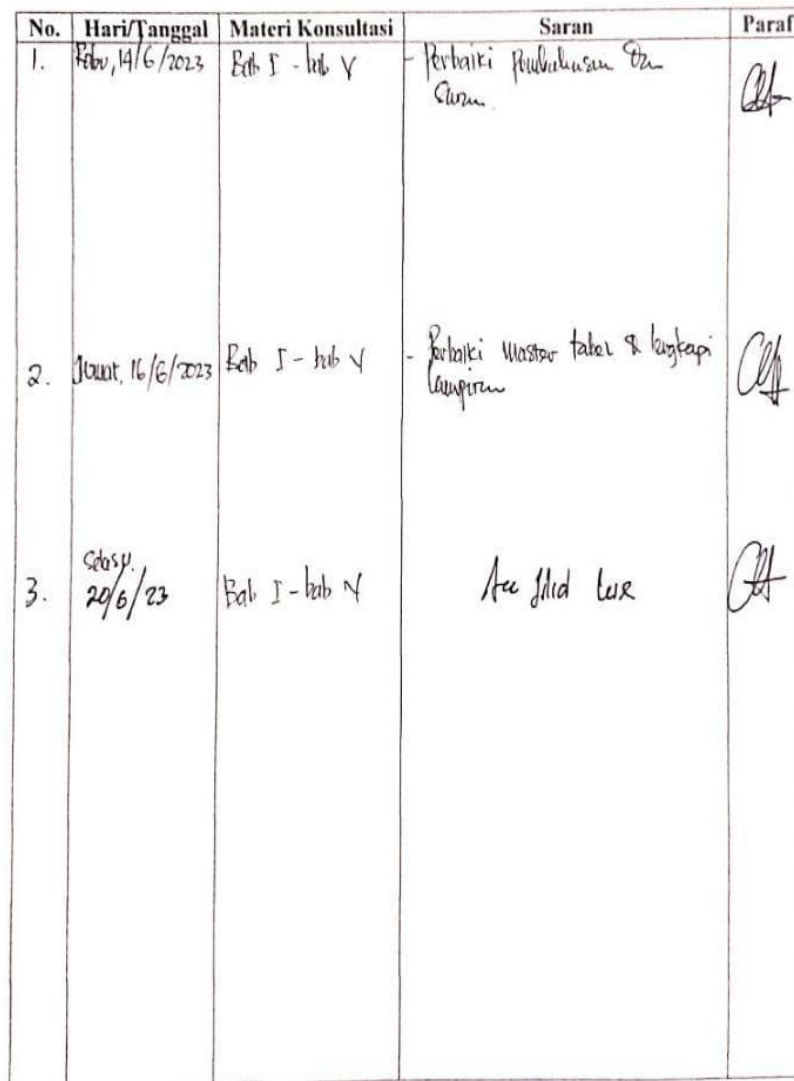 No. Hari/Tanggal Materi Konsultasi Saran Paraf
1. Rabu, 14/6/2023 Bab I - bab V - Perbaiki Pembahasan dan
Saran
2. Jumat, 16/6/2023 Bab I - bab V - Perbaiki master tabel & lengkapi
lampiran
Selasa,
3. 20/6/23 Bab I - bab V Acc